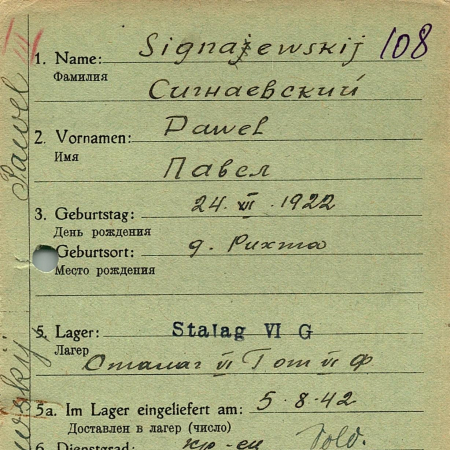 108
1. Name: Signajewskij
Фамилия Сигнаевский
2. Vornamen: Pawel
Имя
Павел
3. Geburtstag: 24. VI. 1922
День рождения
Geburtsort: д. Рихта
Место рождения
5. Lager: Stalag VI G
Лагер
Сталаг VI Гот VI Ф
5a. Im Lager eingeliefert am: 5-8-42
Доставлен в лагер (число)
6. Dienstgrad: кр-ец Sold.
Pawel